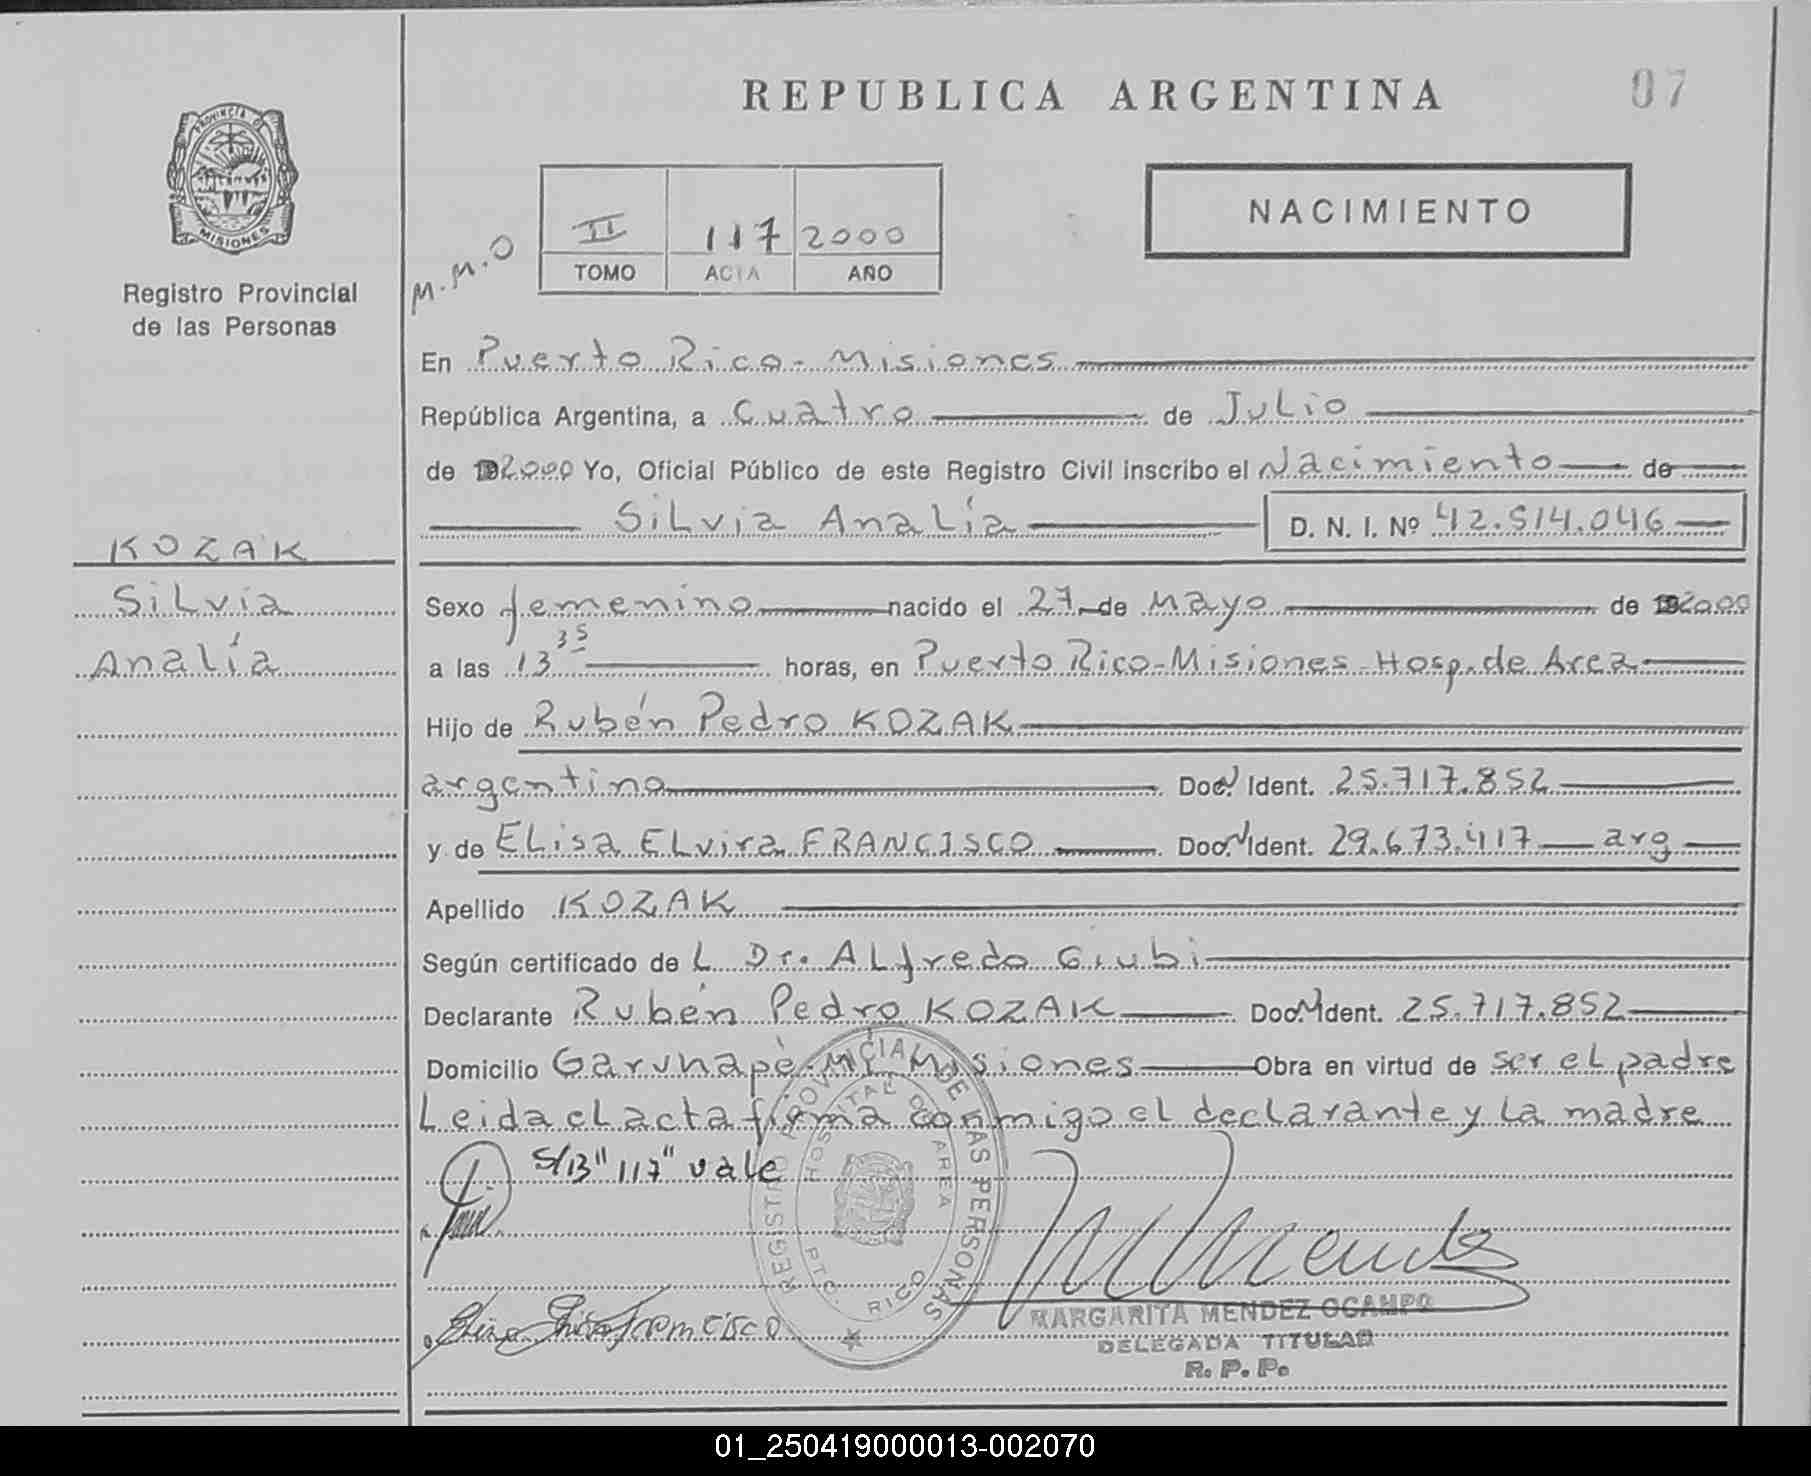 REPUBLICA ARGENTINA
07
PROVINCIA DE
MISIONES
Registro Provincial
de las Personas
M.M.O
II 117 2000
TOMO ACTA AÑO
NACIMIENTO
En Puerto Rico - Misiones
República Argentina, a Cuatro de Julio
de 2000 Yo, Oficial Público de este Registro Civil inscribo el Nacimiento de
Silvia Analía D. N. I. Nº 42.514.046
KOZAK
Silvia
Analía
Sexo femenino nacido el 27 de Mayo de 2000
a las 13 35 horas, en Puerto Rico - Misiones - Hosp. de Area
Hijo de Rubén Pedro KOZAK
argentino Doc. Ident. 25.717.852
y de Elisa Elvira FRANCISCO Doc. Ident. 29.673.417 arg
Apellido KOZAK
Según certificado de L Dr. Alfredo Giubi
Declarante Rubén Pedro KOZAK Doc. Ident. 25.717.852
Domicilio Garuhapé - Mi - Misiones Obra en virtud de ser el padre
Leida el acta firma conmigo el declarante y la madre
S/13 "117" vale
REGISTRO PROVINCIAL DE LAS PERSONAS
HOSPITAL DE AREA
PTO RICO
M Mendez
Francisco
MARGARITA MENDEZ OCAMPO
DELEGADA TITULAR
R. P. P.
01_250419000013-002070